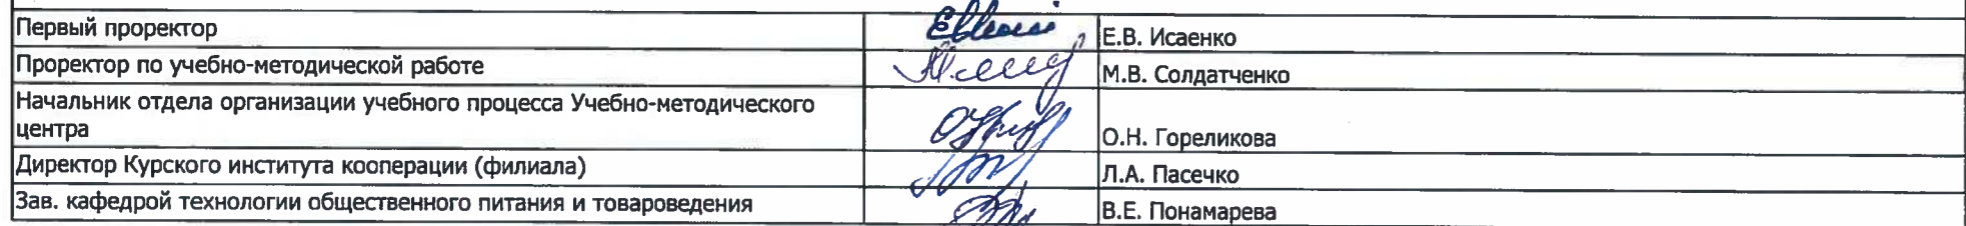 Первый проректор Е.В. Исаенко
Проректор по учебно-методической работе М.В. Солдатченко
Начальник отдела организации учебного процесса Учебно-методического
центра О.Н. Гореликова
Директор Курского института кооперации (филиала) Л.А. Пасечко
Зав. кафедрой технологии общественного питания и товароведения В.Е. Понамарева